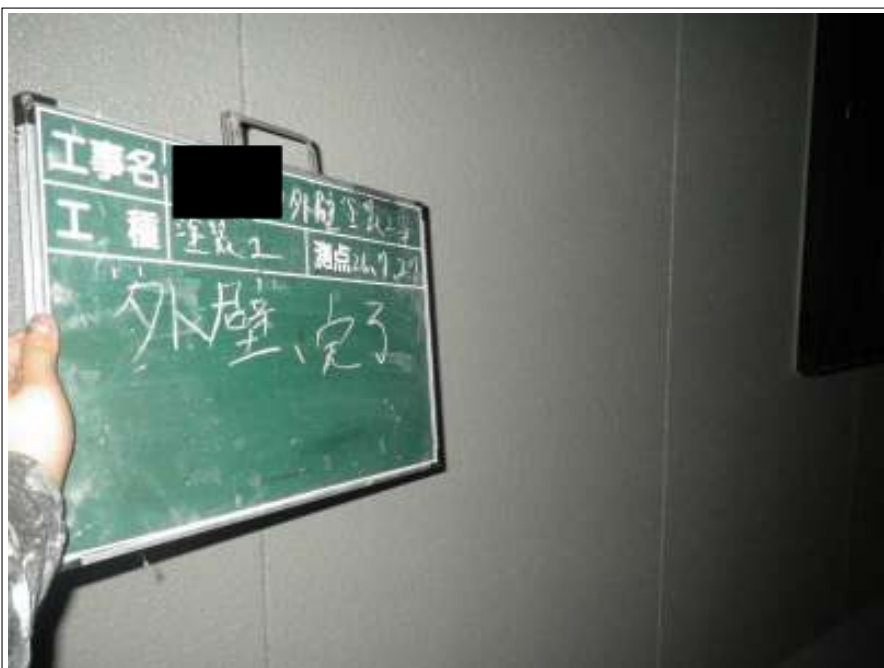 工事名 外壁塗装工事
工種 塗装工 測点 26.7.27
外壁、完了